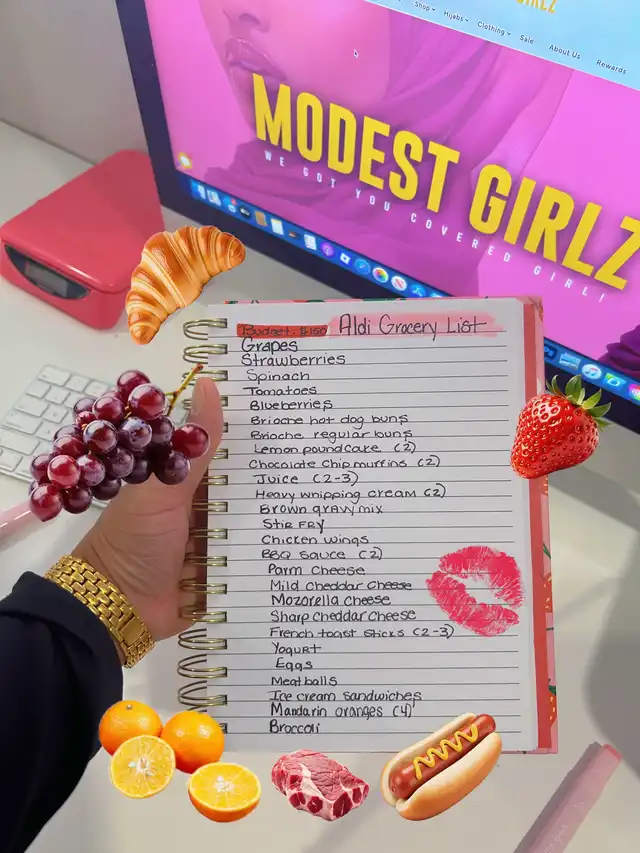 GIRLZ
Shop Hijabs Clothing Sale About Us Rewards
MODEST GIRLZ
WE GOT YOU COVERED GIRL!
Budget: $150 Aldi Grocery List
Grapes
Strawberries
Spinach
Tomatoes
Blueberries
Brioche hot dog buns
Brioche regular buns
Lemon poundcake (2)
Chocolate Chip muffins (2)
Juice (2-3)
Heavy whipping cream (2)
Brown gravy mix
Stir FRY
Chicken wings
BBQ Sauce (2)
Parm Cheese
Mild Cheddar Cheese
Mozorella cheese
Sharp cheddar cheese
French toast sticks (2-3)
Yogurt
Eggs
Meatballs
Ice cream sandwiches
Mandarin oranges (4)
Broccoli